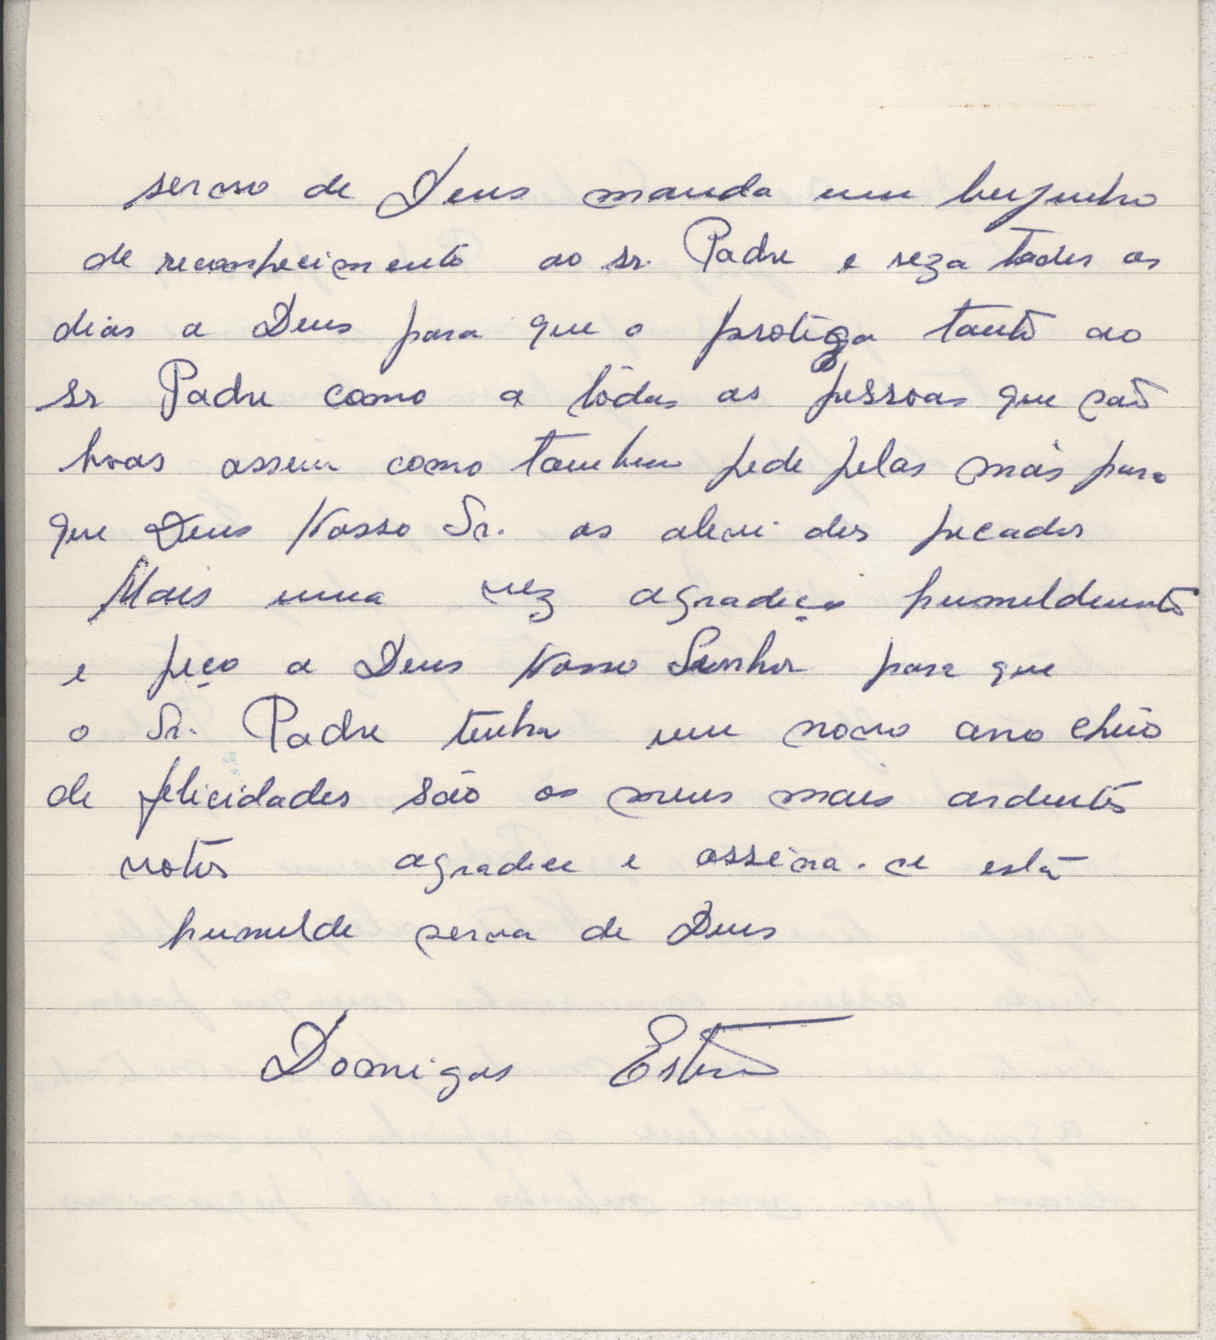 servo de Deus manda um beijinho
de reconhecimento ao sr. Padre e reza todos os
dias a Deus para que o protega tanto ao
sr Padre como a tôdas as pessoas que são
boas assim como tambem pede pelas más para
que Deus Nosso Sr. as alevi dos pecados
Mais uma vez agradeço humildemente
e peço a Deus Nosso Senhor para que
o Sr. Padre tenha um novo ano cheio
de felicidades são os meus mais ardentes
votos agradece e assina-se está
humilde serva de Deus
Domigas